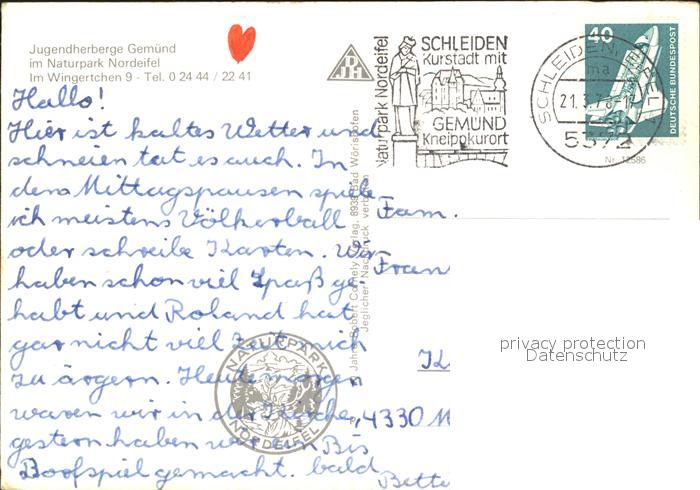 Jugendherberge Gemünd
im Naturpark Nordeifel
Im Wingertchen 9 - Tel. 0 24 44 / 22 41
Hallo!
Hier ist kaltes Wetter und
schneien tat es auch. In
dens Mittagspausen spiele
ich meistens Völkerball
oder schreibe Karten. Wir
haben schon viel Spaß ge-
habt und Roland hat
gar nicht viel Zeit mich
zu ärgern. Heute morgen
waren wir in der Kirche,
gestern haben wir ein Bis
Boofspiel gemacht. bald
NATURPARK
NORDEIFEL
Verlag, 8939 Bad Wörishofen
Jeglicher Nachdruck verboten
Naturpark Nordeifel
SCHLEIDEN
Kurstadt mit
GEMÜND
Kneippkurort
SCHLEIDEN, EIFEL
ma
21.3.78
5372
40
DEUTSCHE BUNDESPOST
Nr. 12586
Fam.
Fran
4330 M
Bitte
privacy protection
Datenschutz